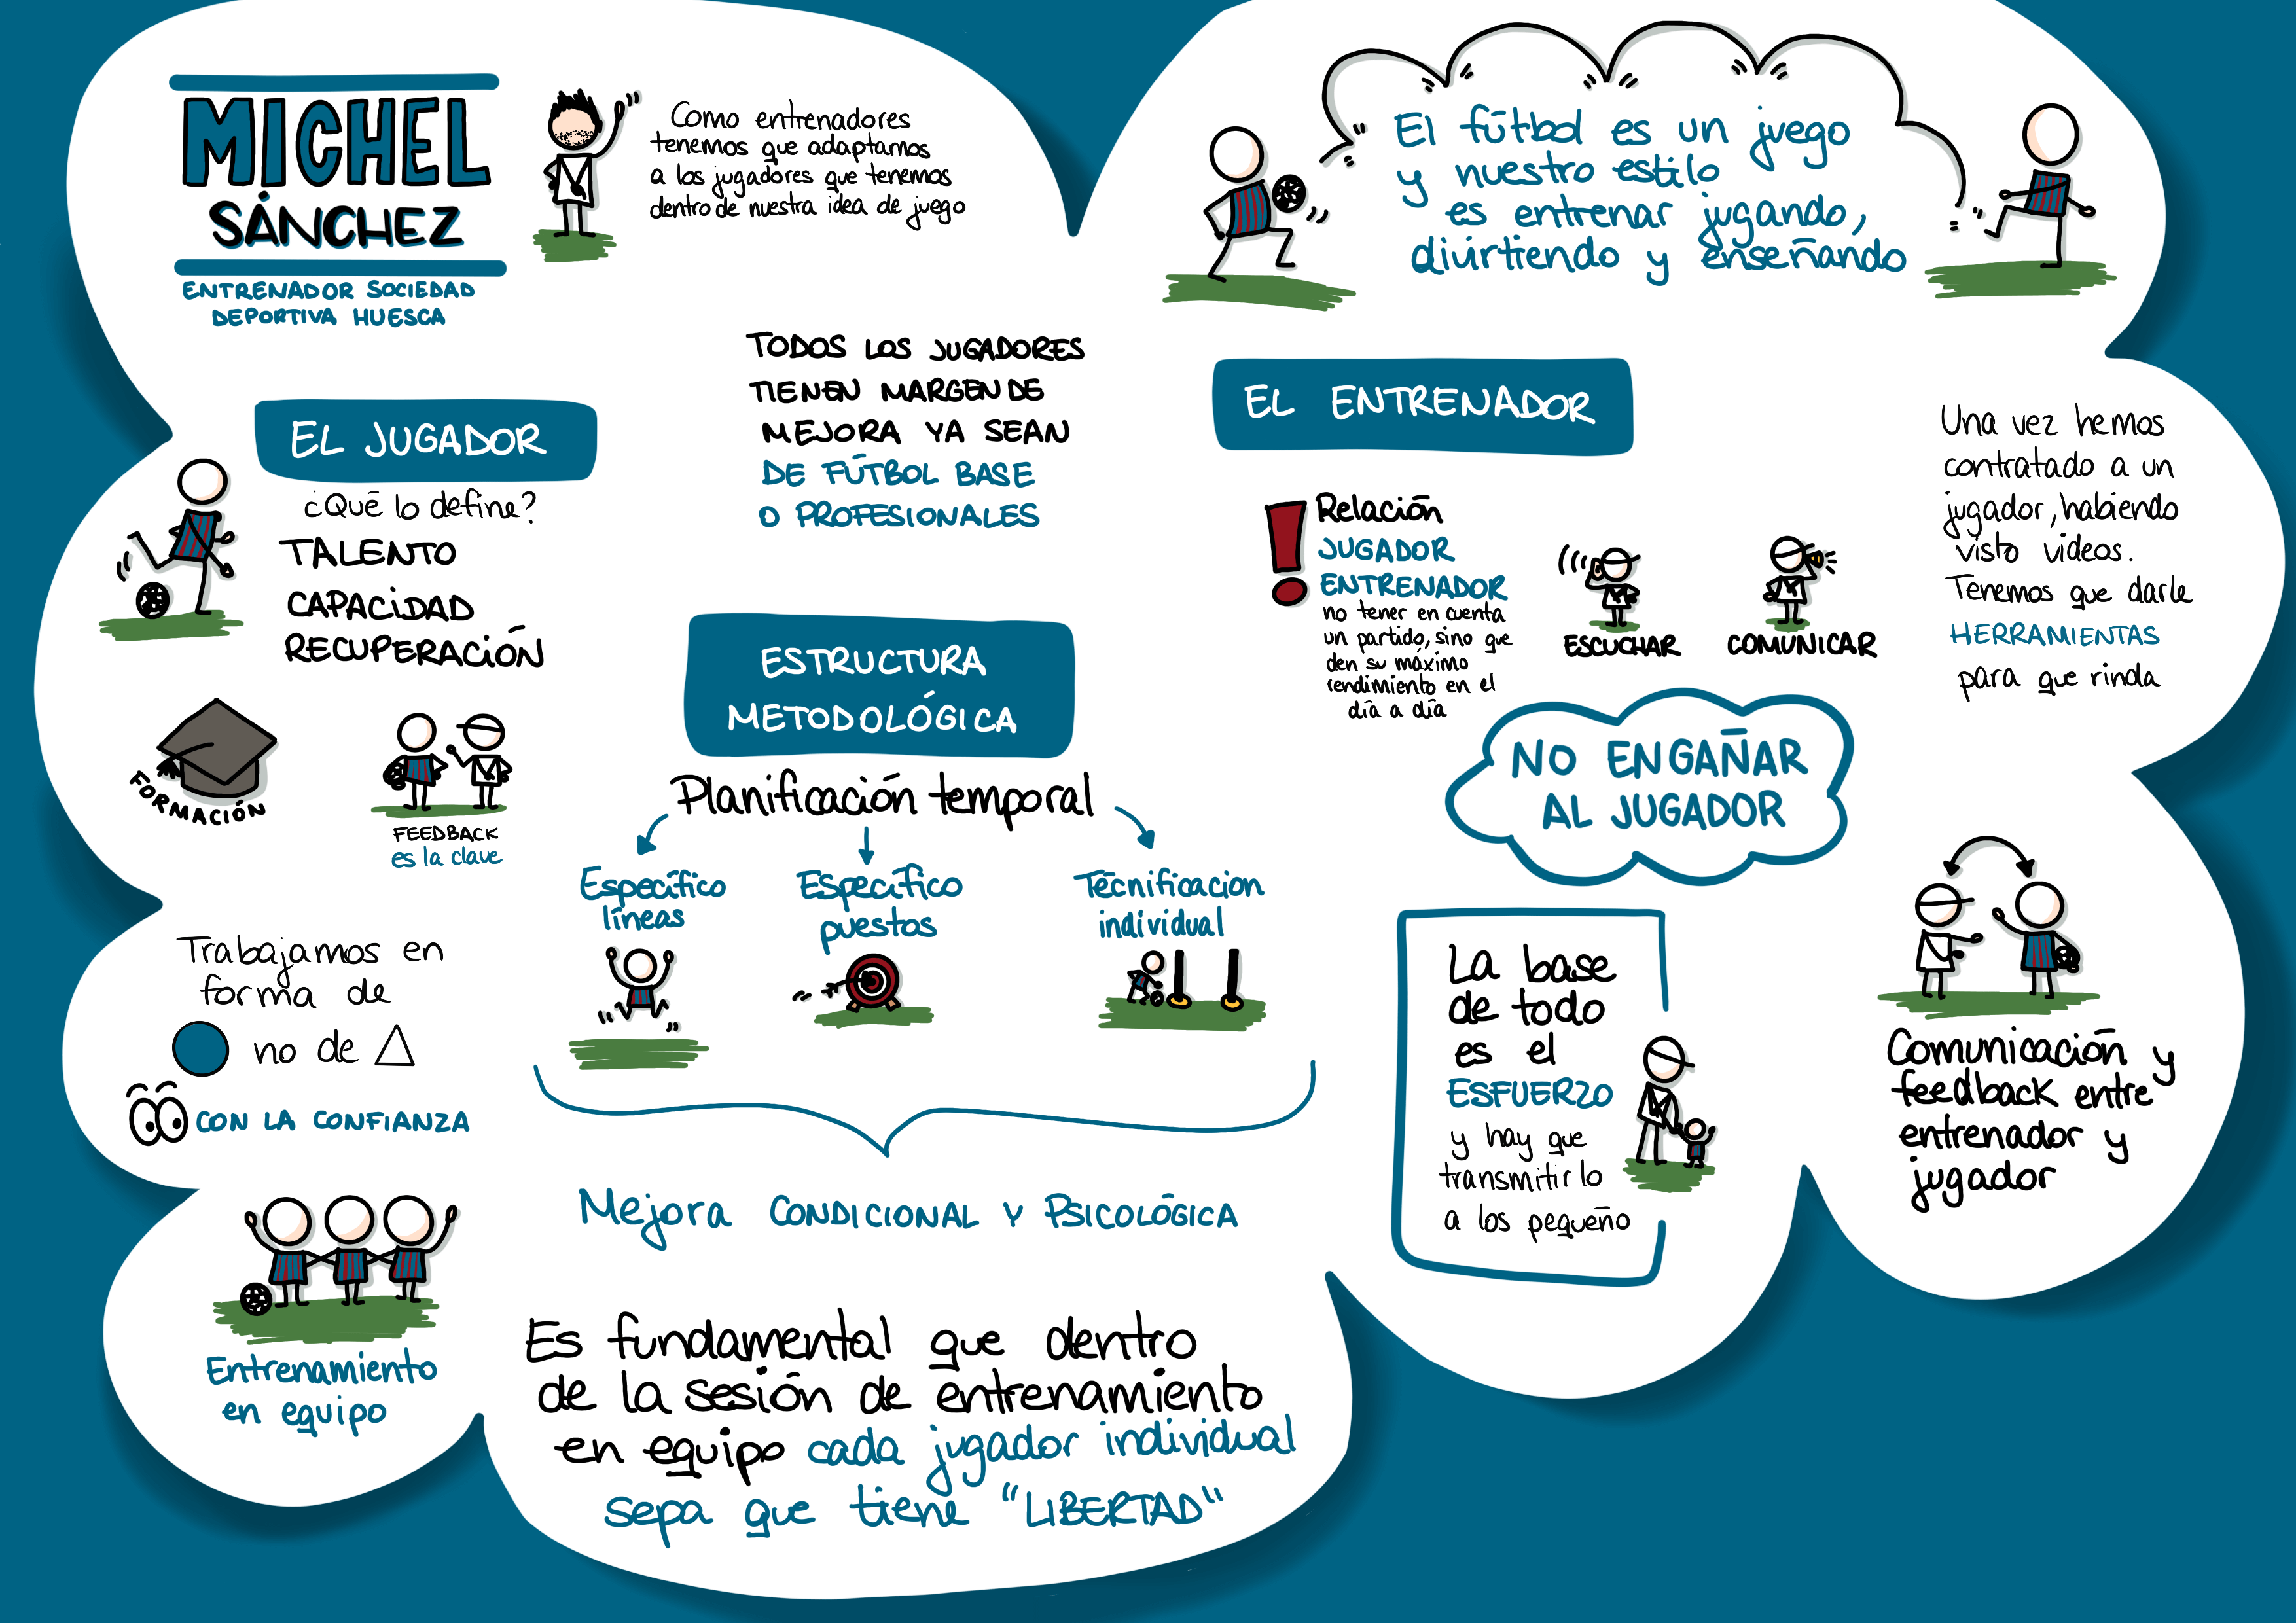 MICHEL
SÁNCHEZ
ENTRENADOR SOCIEDAD
DEPORTIVA HUESCA
Como entrenadores
tenemos que adaptarnos
a los jugadores que tenemos
dentro de nuestra idea de juego
El fútbol es un juego
y nuestro estilo
es entrenar jugando,
diurtiendo y enseñando
TODOS LOS JUGADORES
TIENEN MARGEN DE
MEJORA YA SEAN
DE FÚTBOL BASE
O PROFESIONALES
EL JUGADOR
¿Qué lo define?
TALENTO
CAPACIDAD
RECUPERACIÓN
FORMACIÓN
FEEDBACK
es la clave
Trabajamos en
forma de
no de
CON LA CONFIANZA
Entrenamiento
en equipo
ESTRUCTURA
METODOLÓGICA
Planificación temporal
Específico
líneas
Específico
puestos
Técnificacion
individual
Mejora CONDICIONAL Y PSICOLÓGICA
Es fundamental que dentro
de la sesión de entrenamiento
en equipo cada jugador individual
sepa que tiene "LIBERTAD"
EL ENTRENADOR
Relación
JUGADOR
ENTRENADOR
no tener en cuenta
un partido, sino que
den su máximo
rendimiento en el
día a día
ESCUCHAR
COMUNICAR
Una vez hemos
contratado a un
jugador, habiendo
visto videos.
Tenemos que darle
HERRAMIENTAS
para que rinda
NO ENGAÑAR
AL JUGADOR
La base
de todo
es el
ESFUERZO
y hay que
transmitirlo
a los pequeño
Comunicación y
feedback entre
entrenador y
jugador